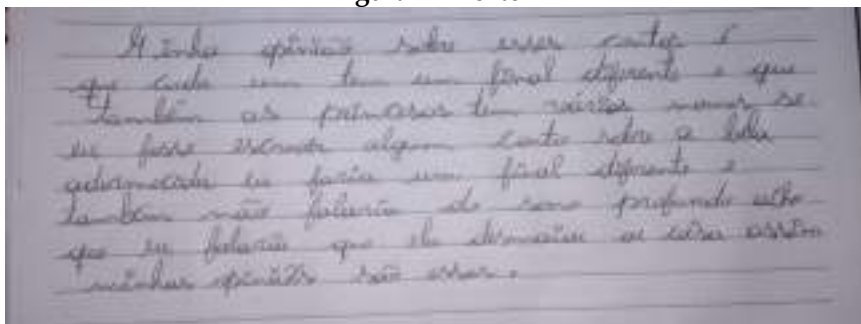 Minha opinião sobre esses contos é
que cada um tem um final diferente e que
também as princesas tem vários nomes se
eu fosse escrever algum conto sobre a bela
adormecida eu faria um final diferente e
também não falaria do sono profundo acho
que eu falaria que ela desmaiou ou coisa assim
minhas opiniões são essas.